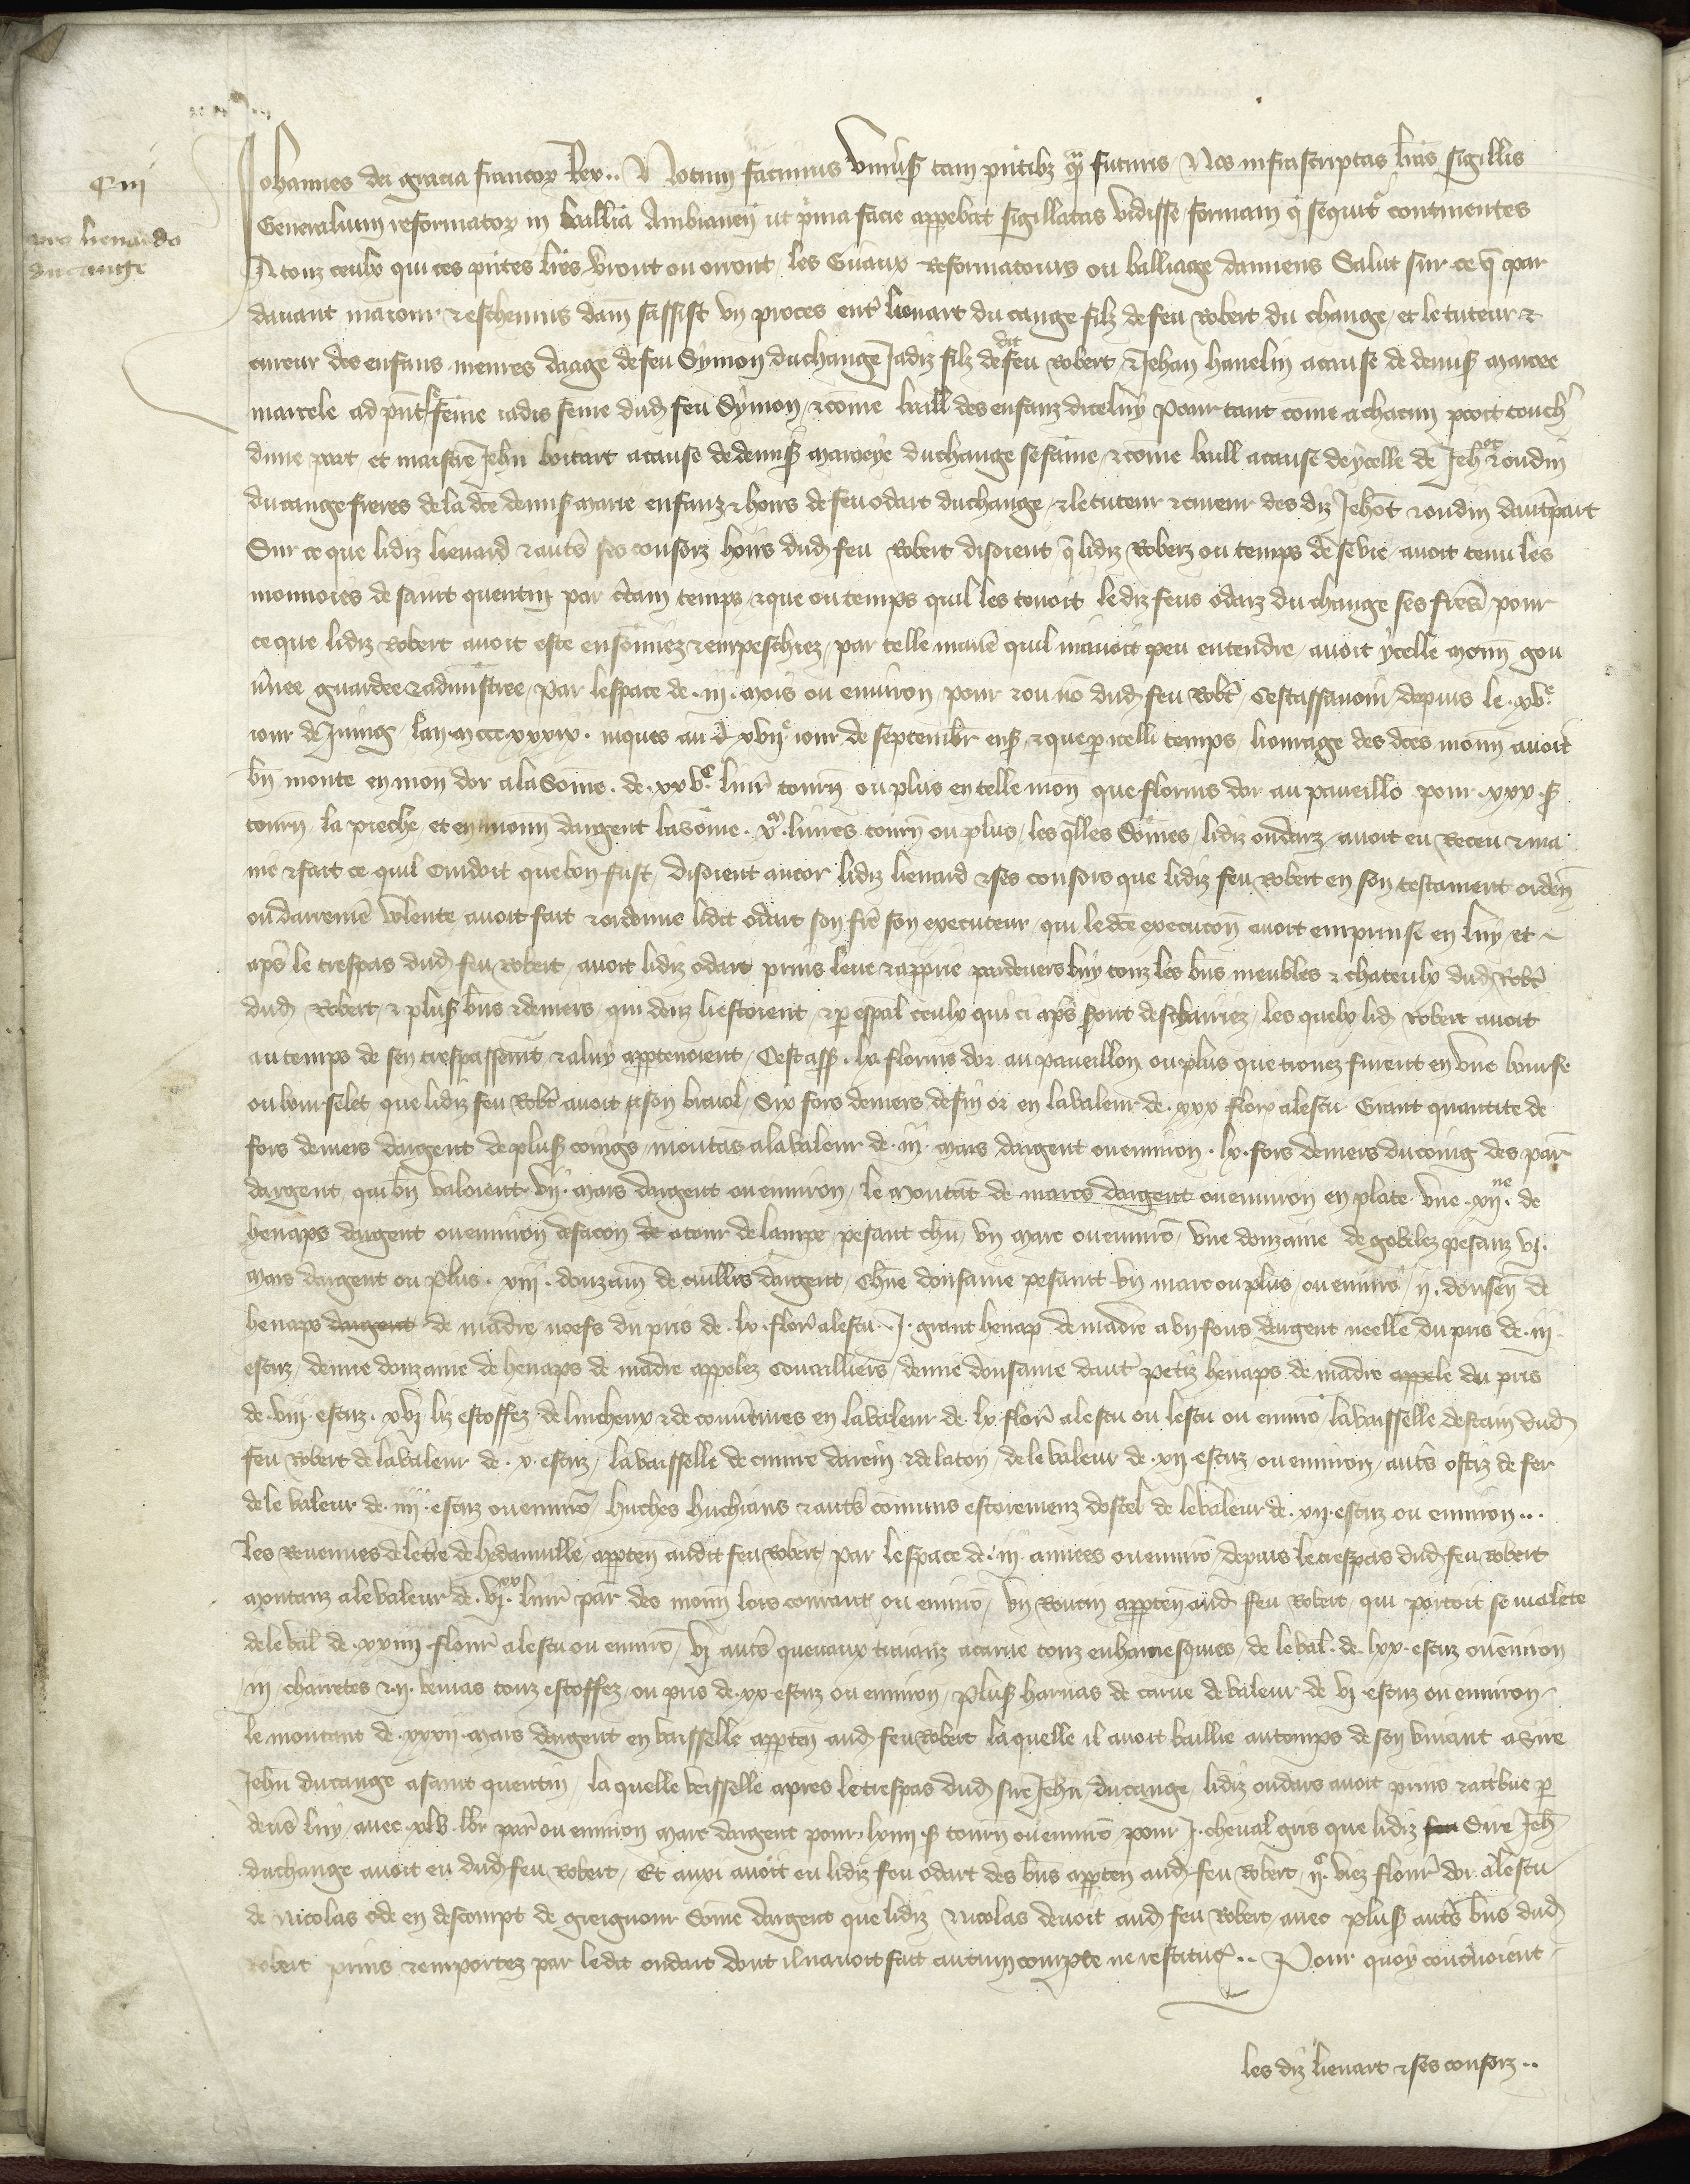 C iij
pro lienardo
du cange
Johannes dei gracia francor Rex .. Notum facimus universis tam pntibz q̃ futuris Nos infrascriptas lras sigillis
Generalium reformator in ballia Ambianeñ ut prima facie appebat sigillatas vidisse formam q̃ sequitr continentes
A touz ceulx qui ces pñtes lres verront ou orront les Gñaux Reformatours ou bailliage damiens Salut sur ce q̃ par
davant maieur & eschevins dam̃ sassist un proces entr̃ lienart du cange filz de feu Robert du change, et le tuteur &
cureur des enfans menres daage de feu Symon du change Jadiz filz de dit feu Robert, & Jehan havelin a cause de demiš̃ maree
marcele ad pñt sa fẽme iadis feme dud feu Symon, & cõme baill des enfanz dicelui pour tant cõme a chacun pooit touchr̃
dune part et maistre Jehñ boitart a cause de demiš̃ mareẽye du change se fame, & cõme baill a cause dẽ ycelle de Jehot & oudin
du cange freres de la dcẽ demiš̃ marie enfanz & hoirs de feu odart du change, & le tuteur & cureur des diz Jehõt & oudin dautrepart
Sur ce que lidiz lienard & autrẽs ses consorz hoirs dud feu Robert disoient q̃ lidiz Roberz ou temps de se vie avoit tenu les
monnoies de saint quentin par ctain temps, & que ou temps quil les tenoit le diz feus odarz du change ses frerẽ pour
ce que lidiz Robert avoit este ensonniez & empeschiez, par telle manrẽ quil navoit peu entendre, avoit ycelle monñ gou
vnee guardee & adminstree, par lespace de .iij. mois ou environ, pour & ou nõ dud feu Robt̃, Cestassavoir, depuis le .xve
iour de Juing lan m ccc xxxix. iuques au d xvije iour de septembr̃ ens, & que p̃ icelli temps louvrage des dcẽs monñ avoit
bñ monte en monñ dor a la Some. de .xx vc livr̃ tourñ ou plus en telle monñ que florins dor au paveillõ pour .xxx. s̃
tourñ la pieche, et en monñ dargent la sõme .xm. livres tourñ ou plus, les q̃lles sõmes, lidiz oudarz avoit eu Receu & ma
nie & fait ce quil cuidoit que bon fust, disoient encor lidiz lienard & ses consors que lidiz feu Robert en son testament ordeñ
ou darreniẽ volente avoit fait & ordonne lidit odart son frẽ son executeur, qui le dcẽ execucion avoit emprinse en luy, et
aps̃ le trespas dud feu Robert, avoit lidiz odart prins leve & apprie pardevers luy touz les bñs meubles & chateulx dud Robt̃
dud Robert, & plus̃ bñs & deniers, qui deuz li estoient, & p̃ espal̃ ceulx qui ci aps̃ sont desclairiez, les quelx lid Robert avoit
au temps de sen trespassemt̃ & a luy apptenoient, Cestass̃. lx florins dor au paveillon, ou plus que trouez furent en une bourse
ou bourselet que lidiz feu Robt̃ avoit a son bienol, Six fors deniers de fin or en la valeur de .xxx flor̃ a lescu Grant quantite de
fors deniers dargent de plus̃ coings, montãs a la valeur de .iij. mars dargent ou environ .lx. fors deniers du coing des par̃
dargent qui bñ valoient .vij. mars dargent ou environ, le montãt de marcs dargent ou environ en plate une .xijne. de
henaps dargent ou environ de facon de atour de lampe, pesant chũ, un marc ou environ, une donzaine de gobelez pesanz vj.
mars dargent ou plus. xiij. donzain̄ de cuilliers dargent, chũe donsaine pesantt un marc ou plus, ou environ, ij. donseñ de
henaps dargent de madre neefs du pris de .lx flor̃ a lescu .J. grant henap de madre a un fons dargent neelle du pris de .iij
escuz, demie donzaine de henaps de madre appelez Couvilliers, demie donsaine dautr̃ petiz henaps de madre appele du pris
de viij escuz. xvj liz estoffez de lincheux & de couvrtures en la valeur de .lx. flor̃ a lescu ou lescu ou environ, la vaisselle destain dud
feu Robert de la valeur de .x. escuz, la vaisselle de cuivre darein & de laton, de le valeur de .xij. escuz ou environ, autrẽs ostiz de fer
de le valeur de .iiij. escuz ou environ, huches huchiaus & autrẽs comuns estoremenz dostel de le valeur de .xij. escuz ou environ ...
les Revenues de le tre de hedauville, apptenñ audit feu Robert, par lespace de .iij. annees ou environ, depuis le trespas dud feu Robert
montanz a le valeur de .vjxx. livr̃ par̃ des monñ lors courant, ou environ, un Roncin apptenñ aud feu Robert, qui portoit se malete
de le val̃ de .xxiiij flour̃ a lescu ou environ, vj autrẽs quevaux tirvanz a carue touz enharnesquies, de le val̃. de .lxx. escuz ou environ
iij. charretes & .ij. benias touz estoffez, ou pris de .xx. escuz ou environ, plus̃ harnas de carue de valeur de vj. escuz ou environ
le montant de .xxxij. mars dargent en vaisselle apptenñ aud feu Robert la quelle il avoit baillie au temps de son vivant a Sire
Jehñ du cange a saint quentin, la quelle veisselle apres le trespas dud sire Jehñ du cange, lidiz oudars avoit prins & attbue p̃
devs̃ luy, avec .xlv. lbr̃ par̃ ou environ marc dargent pour .lxiiij. s̃ tourñ ou environ, pour J. cheval gris que lidiz feu Sire Jeh̃
du change avoit eu dud feu Robert, Et auxi avoit eu lidiz feu odart des bñs apptenñ aud feu Robert .ijc. viez flour̃ dor a lescu
de Nicolas ode en descompt de greigneur sõme dargent que lidiz Nicolas devoit aud feu Robert, avec plus̃ autrẽs bñs dud
Robert prins & emportez par ledit oudart dont il navoit fait aucun compte ne restituc̃ .. Pour quoy conclvoient
les diz lienart & ses consorz ..